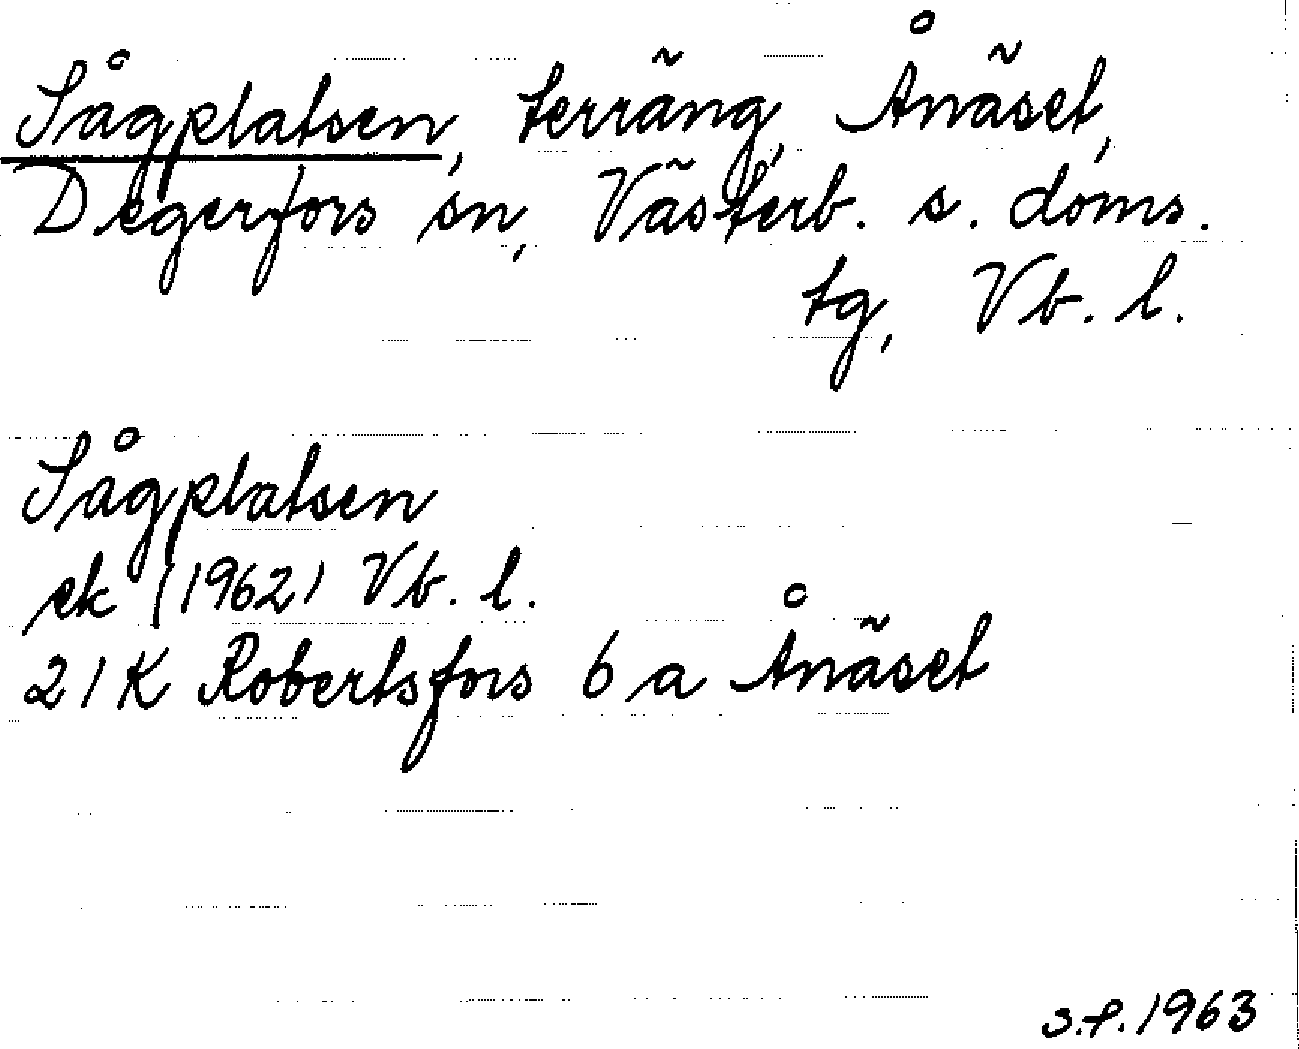 Sågplatsen, terräng, Ånäset,
Degerfors sn, Västerb. s. doms.
tg, Vb. l.
Sågplatsen
ek (1962) Vb. l.
21K Robertsfors 6 a Ånäset
S.F. 1963